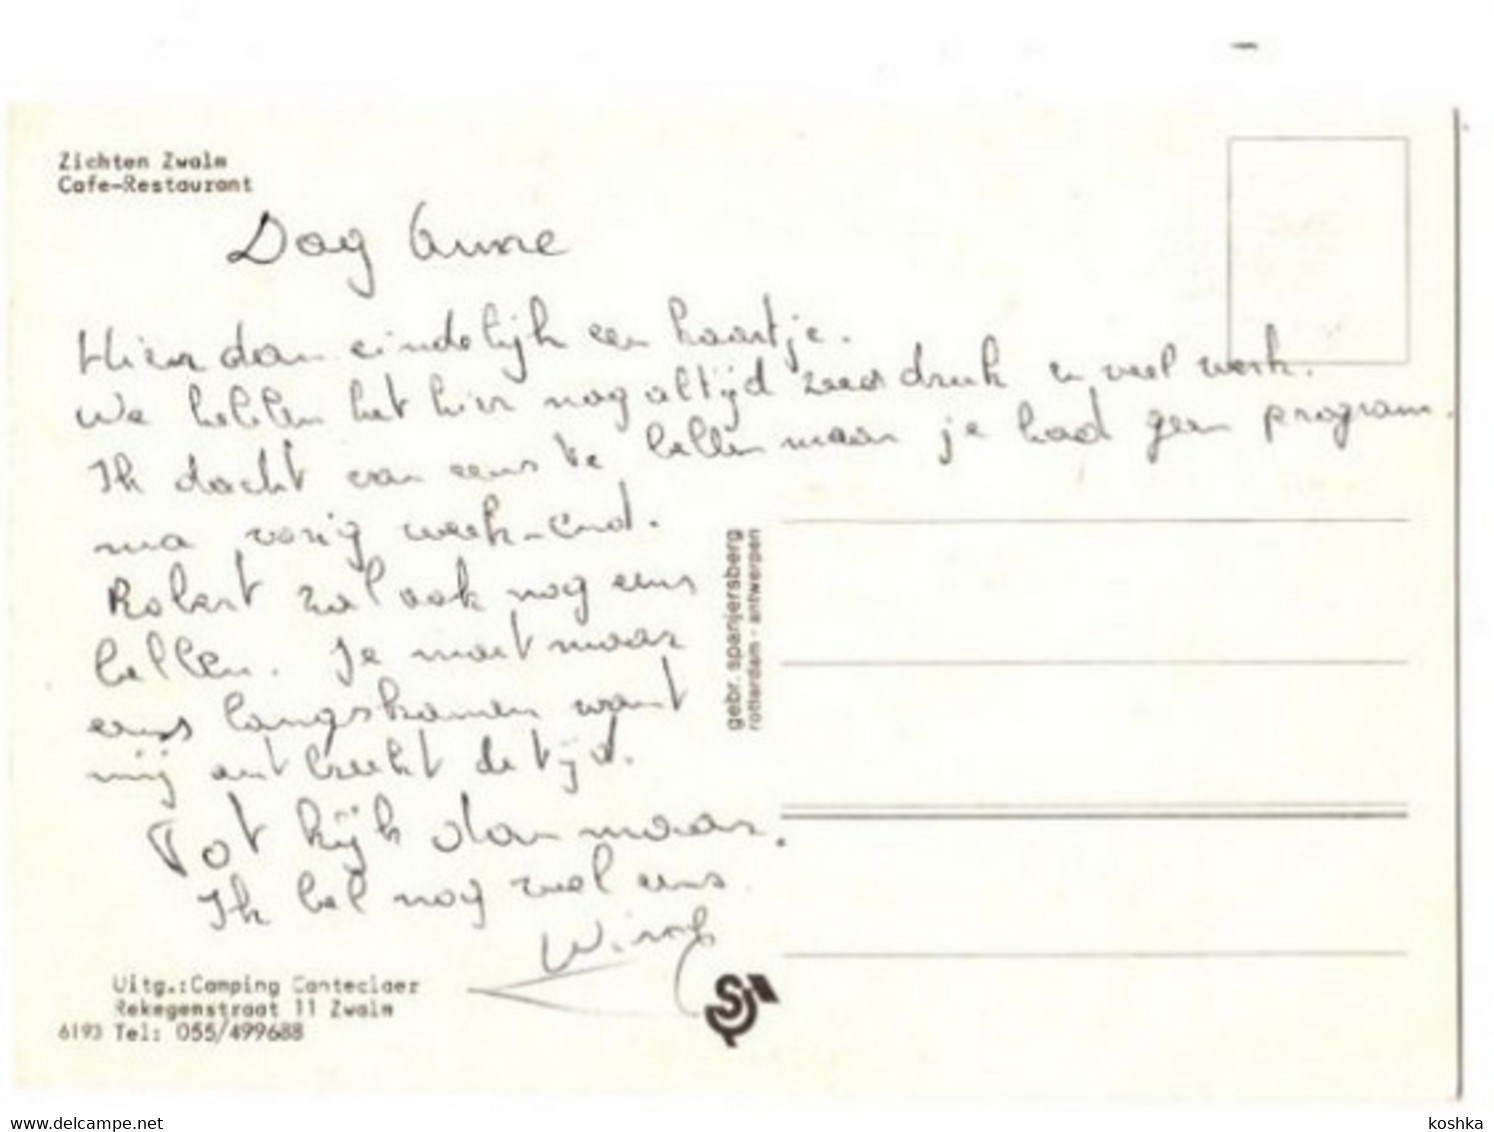 Zichten Zwalm
Cafe-Restaurant
Dag Anne
Hier dan eindelijk een kaartje.
We hebben het hier nog altijd zeer druk en veel werk.
Ik dacht van eens te bellen maar je had geen program
ma vorig week-end.
Robert zal ook nog eens
bellen. Je moet maar
eens langskomen want
mij ontbreekt de tijd.
Tot kijk dan maar.
Ik bel nog wel eens.
gebr. spanjersberg
rotterdam - antwerpen
Uitg.:Camping Canteclaer
Rekegemstraat 11 Zwalm
6193 Tel: 055/499688
www.delcampe.net
koshka